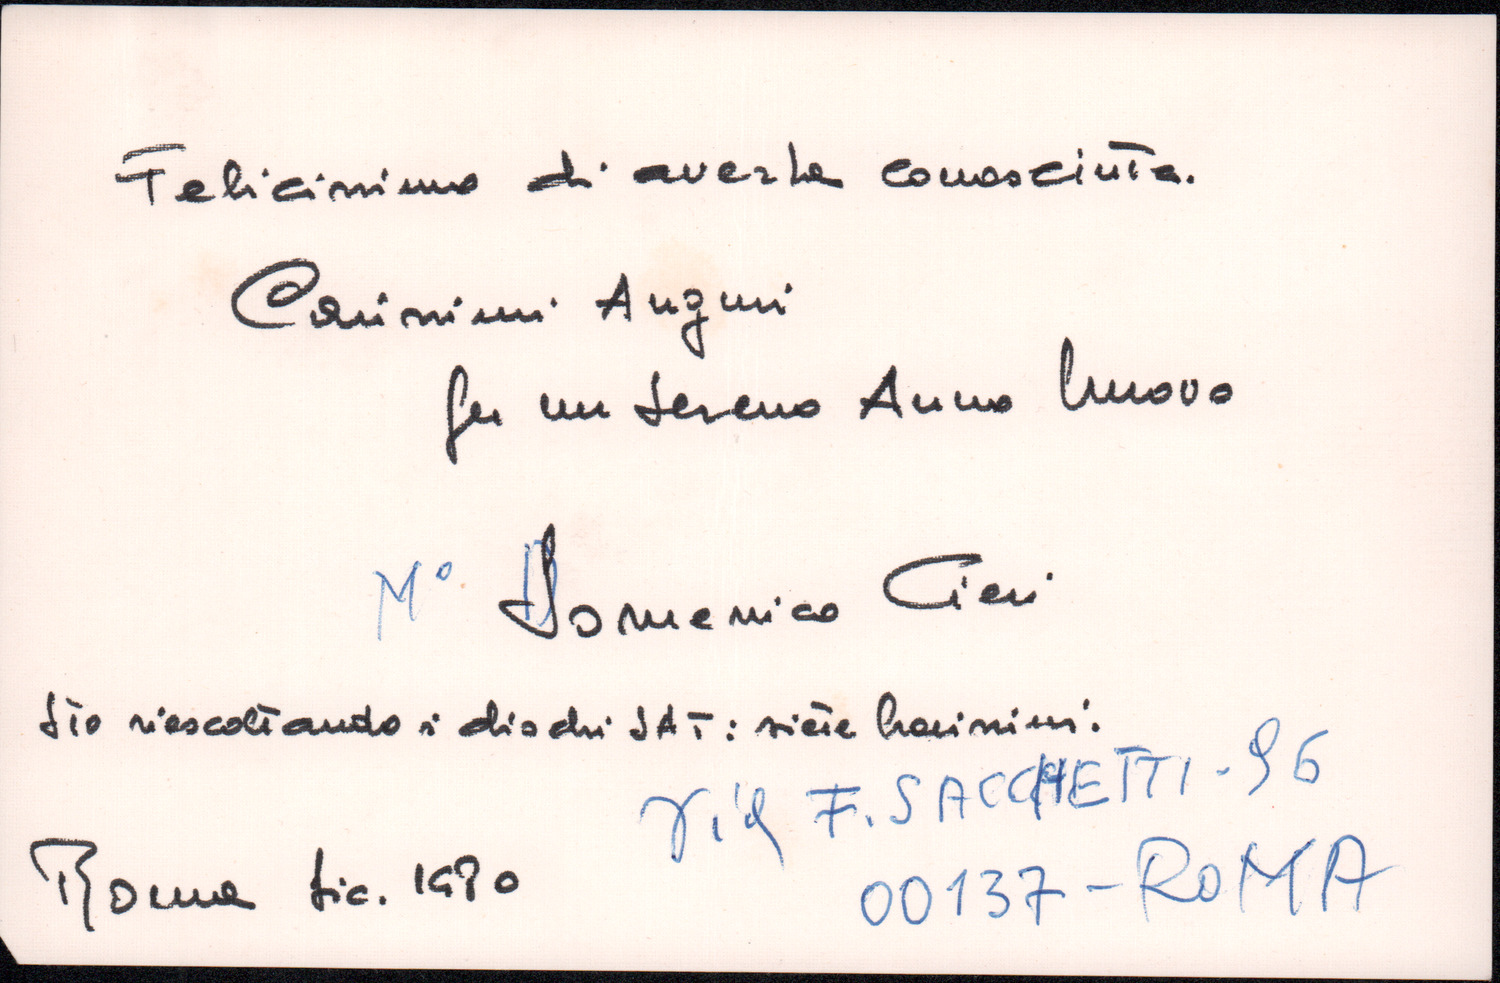 Felicissimo di averla conosciuta.
Carissimi Auguri
per un sereno Anno Nuovo
M° Domenico Cieri
Sto riascoltando i dischi SAT: siete bravissimi!
Via F. SACCHETTI - 96
00137 - ROMA
Roma Dic. 1980